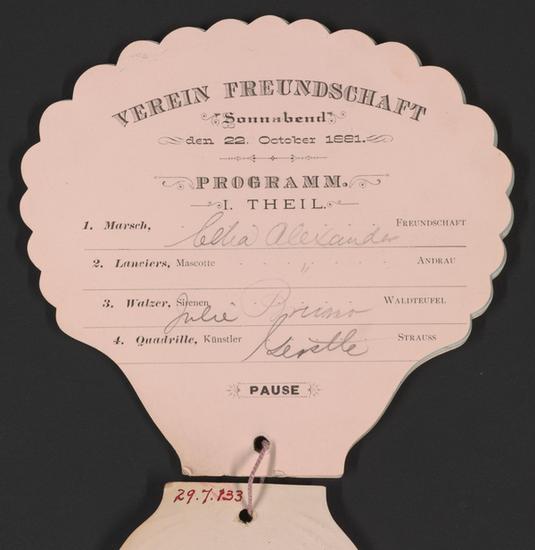 VEREIN FREUNDSCHAFT
Sonnabend
den 22. October 1881.
PROGRAMM.
I. THEIL.
1. Marsch, Celia Alexander FREUNDSCHAFT
2. Lanciers, Mascotte " ANDRAU
3. Walzer, Sirenen Julie Bruno WALDTEUFEL
4. Quadrille, Künstler Gerstle STRAUSS
PAUSE
29.7.133